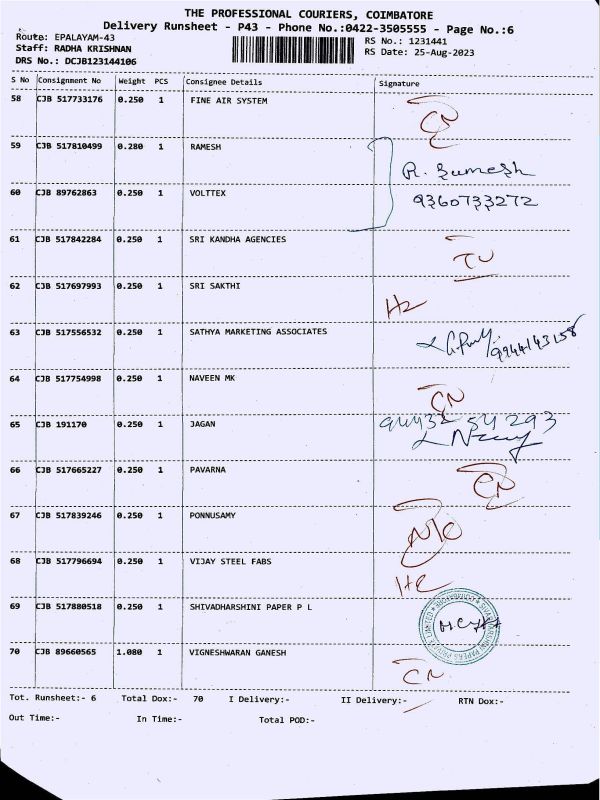 THE PROFESSIONAL COURIERS, COIMBATORE
Delivery Runsheet - P43 - Phone No.:0422-3505555 - Page No.:6
Route: EPALAYAM-43 RS No.: 1231441
Staff: RADHA KRISHNAN RS Date: 25-Aug-2023
DRS No.: DCJB123144106
S No Consignment No Weight PCS Consignee Details Signature
58 CJB 517733176 0.250 1 FINE AIR SYSTEM CN
59 CJB 517810499 0.280 1 RAMESH R. Sumesh
60 CJB 89762863 0.250 1 VOLTTEX 9360733272
61 CJB 517842284 0.250 1 SRI KANDHA AGENCIES
62 CJB 517697993 0.250 1 SRI SAKTHI
63 CJB 517556532 0.250 1 SATHYA MARKETING ASSOCIATES 9944143158
64 CJB 517754998 0.250 1 NAVEEN MK CN
65 CJB 191170 0.250 1 JAGAN
66 CJB 517665227 0.250 1 PAVARNA CN
67 CJB 517839246 0.250 1 PONNUSAMY
68 CJB 517796694 0.250 1 VIJAY STEEL FABS
69 CJB 517880518 0.250 1 SHIVADHARSHINI PAPER P L
70 CJB 89660565 1.080 1 VIGNESHWARAN GANESH CN
Tot. Runsheet:- 6 Total Dox:- 70 I Delivery:- II Delivery:- RTN Dox:-
Out Time:- In Time:- Total POD:-